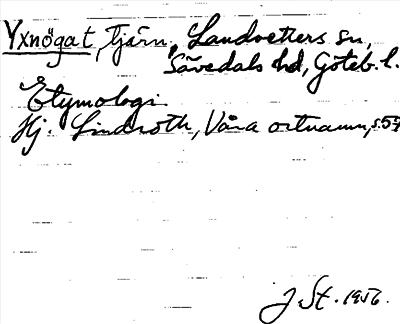 Yxnögat, tjärn, Landvetters sn,
Sävedals hd, Göteb. l.
Etymologi
Hj. Lindroth, Våra ortnamn, s. 59
J. St. 1956.